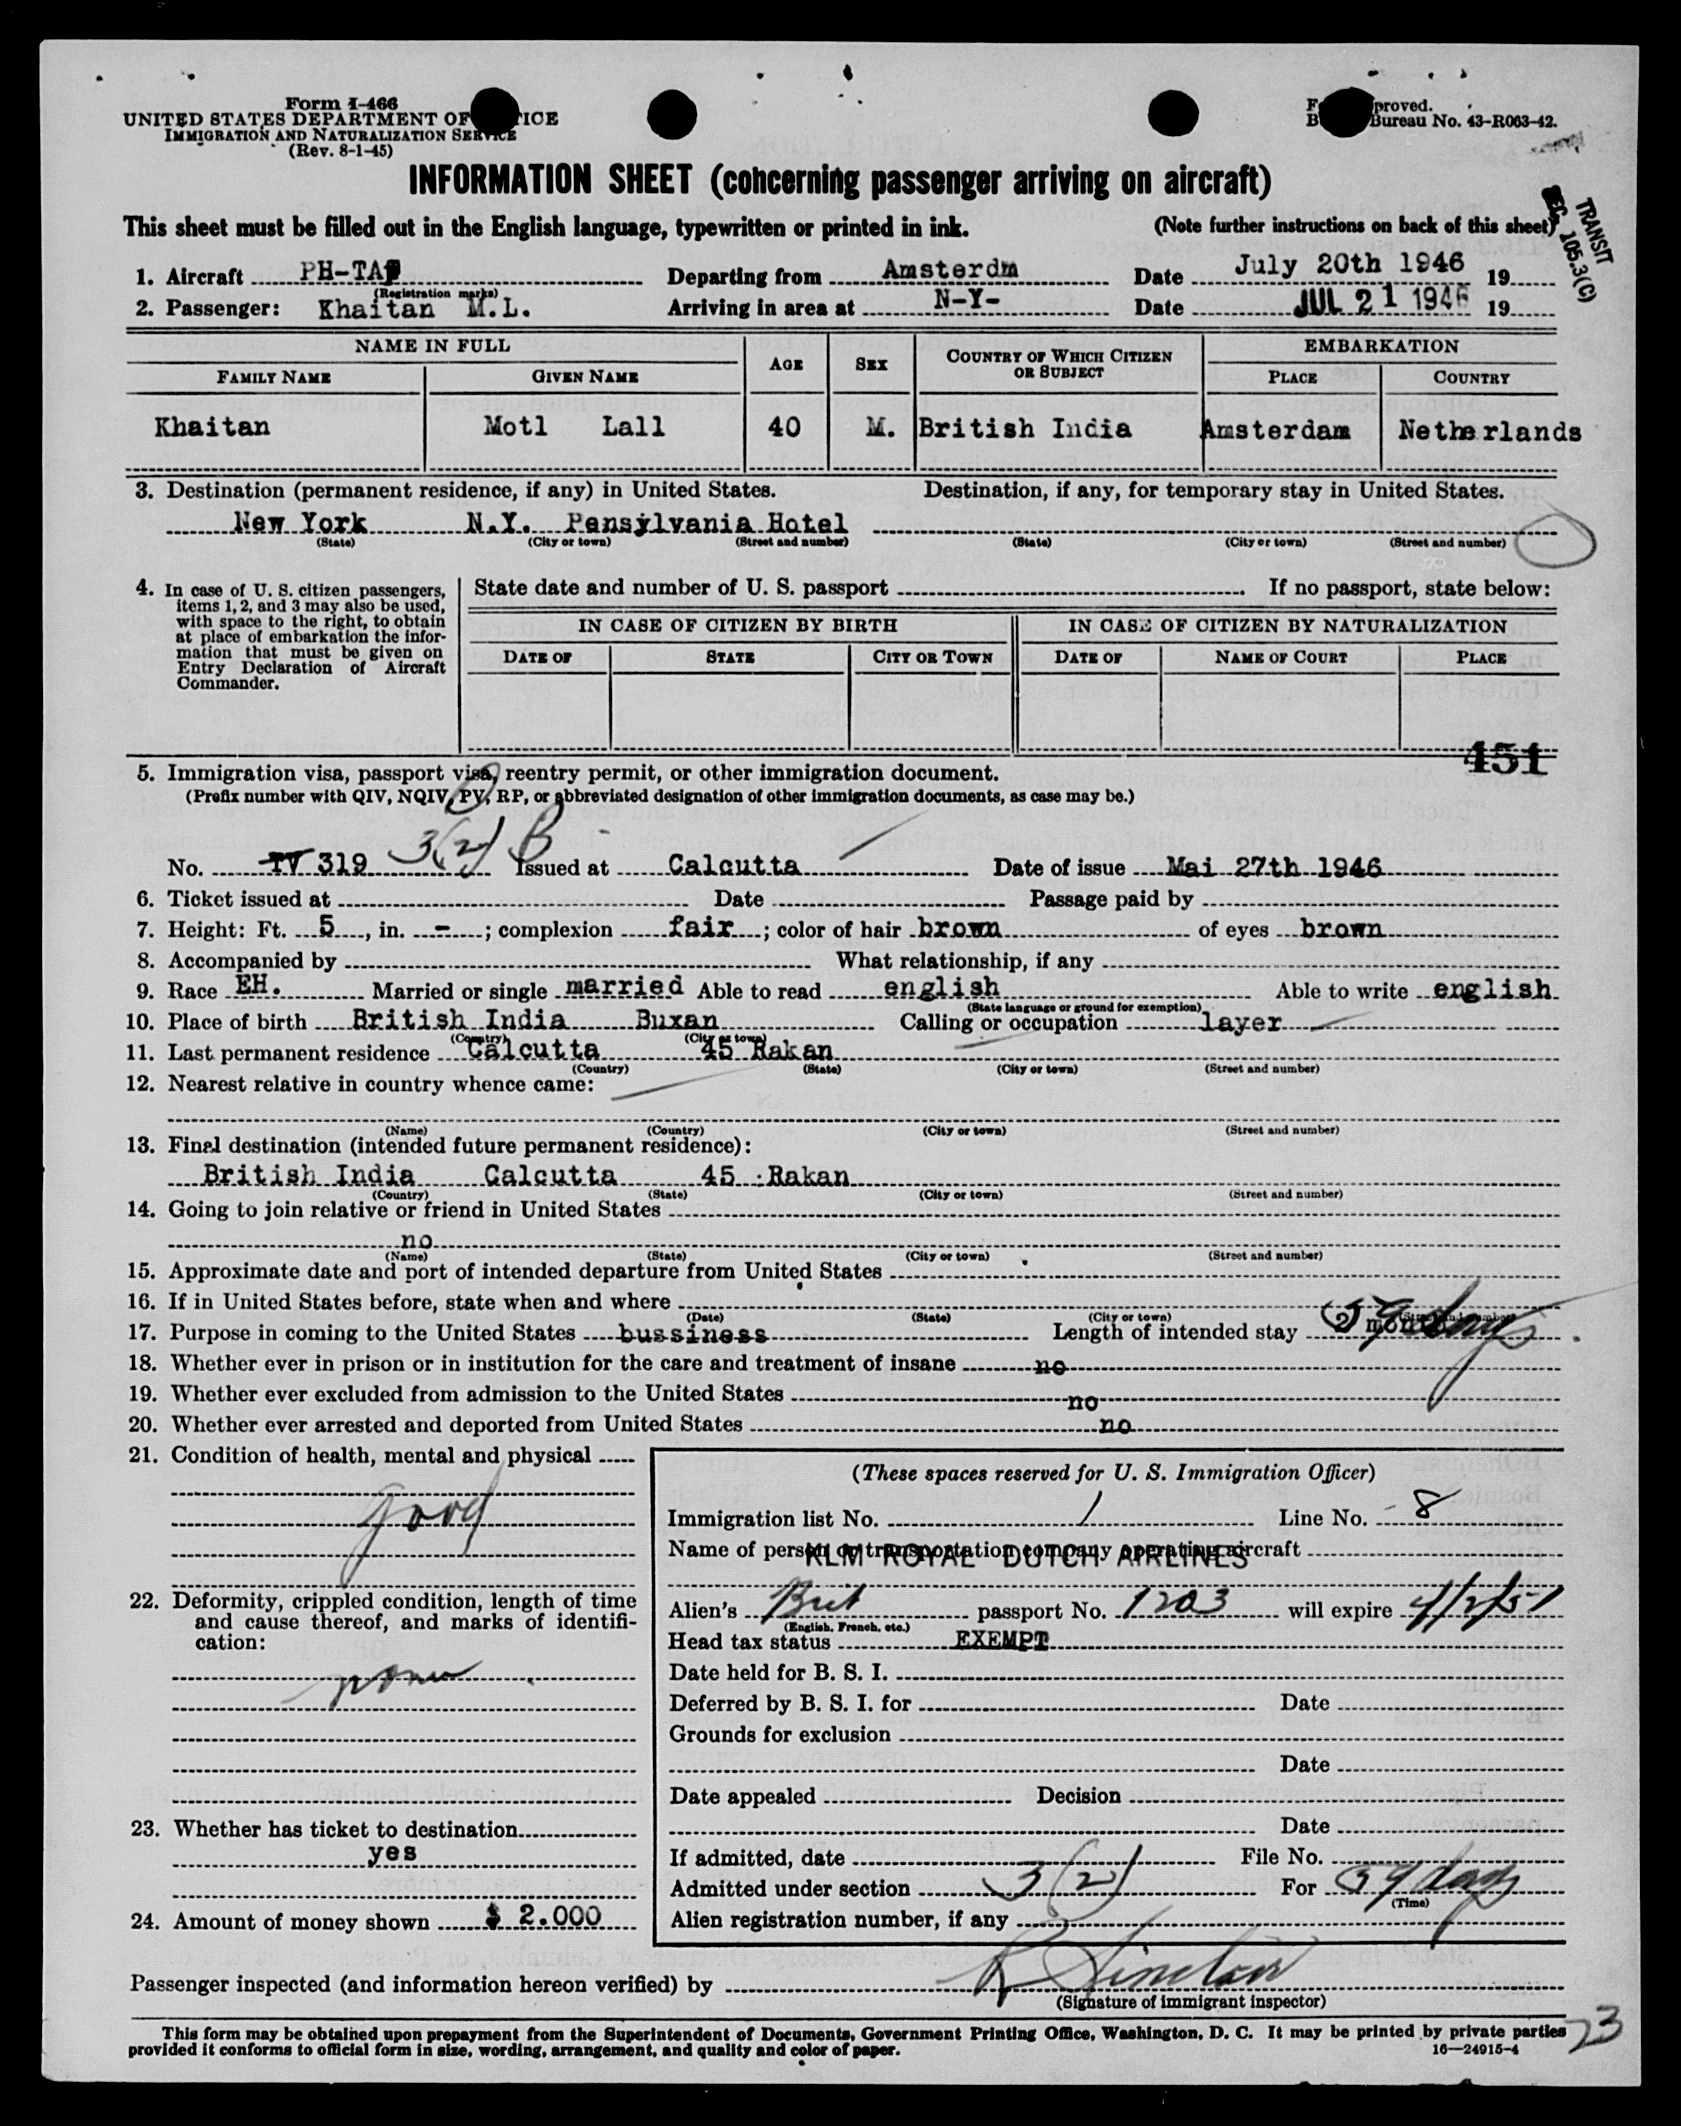 Form I-466
UNITED STATES DEPARTMENT OF
IMMIGRATION AND NATURALIZATION SERVICE
(Rev. 8-1-45)
proved.
Bureau No. 43-R063-42.
INFORMATION SHEET (concerning passenger arriving on aircraft)
TRANSIT
SEC. 105.3(C)
This sheet must be filled out in the English language, typewritten or printed in ink. (Note further instructions on back of this sheet)
1. Aircraft PH-TA Departing from Amsterdm Date July 20th 1946 19
(Registration marks)
2. Passenger: Khaitan M.L. Arriving in area at N-Y- Date JUL 21 1946 19
NAME IN FULL AGE SEX COUNTRY OF WHICH CITIZEN OR SUBJECT EMBARKATION
FAMILY NAME GIVEN NAME PLACE COUNTRY
Khaitan Motl Lall 40 M. British India Amsterdam Netherlands
3. Destination (permanent residence, if any) in United States. Destination, if any, for temporary stay in United States.
New York N.Y. Pensylvania Hotel
(State) (City or town) (Street and number) (State) (City or town) (Street and number)
4. In case of U. S. citizen passengers, items 1, 2, and 3 may also be used, with space to the right, to obtain at place of embarkation the information that must be given on Entry Declaration of Aircraft Commander.
State date and number of U. S. passport . If no passport, state below:
IN CASE OF CITIZEN BY BIRTH IN CASE OF CITIZEN BY NATURALIZATION
DATE OF STATE CITY OR TOWN DATE OF NAME OF COURT PLACE
451
5. Immigration visa, passport visa, reentry permit, or other immigration document.
(Prefix number with QIV, NQIV, PV, RP, or abbreviated designation of other immigration documents, as case may be.)
3(2) B
No. TV 319 Issued at Calcutta Date of issue Mai 27th 1946
6. Ticket issued at Date Passage paid by
7. Height: Ft. 5, in. -; complexion fair; color of hair brown of eyes brown
8. Accompanied by What relationship, if any
9. Race EH. Married or single married Able to read english Able to write english
(State language or ground for exemption)
10. Place of birth British India Buxan Calling or occupation layer
(Country) (City or town)
11. Last permanent residence Calcutta 45 Rakan
(Country) (State) (City or town) (Street and number)
12. Nearest relative in country whence came:
(Name) (Country) (City or town) (Street and number)
13. Final destination (intended future permanent residence):
British India Calcutta 45 Rakan
(Country) (State) (City or town) (Street and number)
14. Going to join relative or friend in United States
no
(Name) (State) (City or town) (Street and number)
15. Approximate date and port of intended departure from United States
16. If in United States before, state when and where
(Date) (State) (City or town) (Street and number)
17. Purpose in coming to the United States bussiness Length of intended stay 59 days
18. Whether ever in prison or in institution for the care and treatment of insane no
19. Whether ever excluded from admission to the United States no
20. Whether ever arrested and deported from United States no
21. Condition of health, mental and physical
good
22. Deformity, crippled condition, length of time and cause thereof, and marks of identification:
none
23. Whether has ticket to destination
yes
24. Amount of money shown $ 2.000
(These spaces reserved for U. S. Immigration Officer)
Immigration list No. 1 Line No. 8
Name of person or transportation company operating aircraft
KLM ROYAL DUTCH AIRLINES
Alien's Brit passport No. 1203 will expire 4/2/51
(English, French, etc.)
Head tax status EXEMPT
Date held for B. S. I.
Deferred by B. S. I. for Date
Grounds for exclusion
Date
Date appealed Decision
Date
If admitted, date File No.
Admitted under section 3(2) For 59 days
(Time)
Alien registration number, if any
Passenger inspected (and information hereon verified) by R Sinclair
(Signature of immigrant inspector)
This form may be obtained upon prepayment from the Superintendent of Documents, Government Printing Office, Washington, D. C. It may be printed by private parties
provided it conforms to official form in size, wording, arrangement, and quality and color of paper. 16—24915-4
23